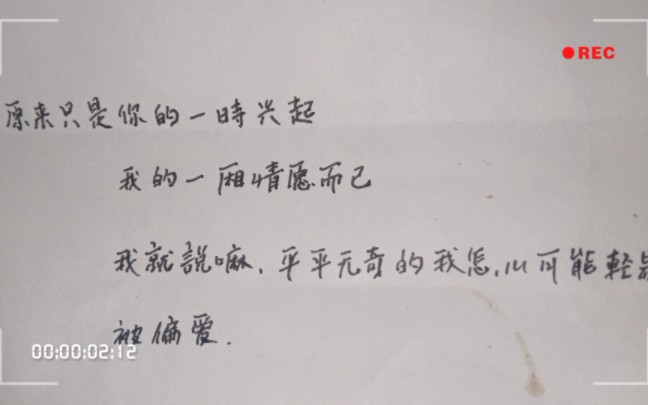 REC
原来只是你的一時兴起
我的一厢情愿而已
我就說嘛，平平无奇的我怎，以可能軽
被偏爱．
00:00:02:12